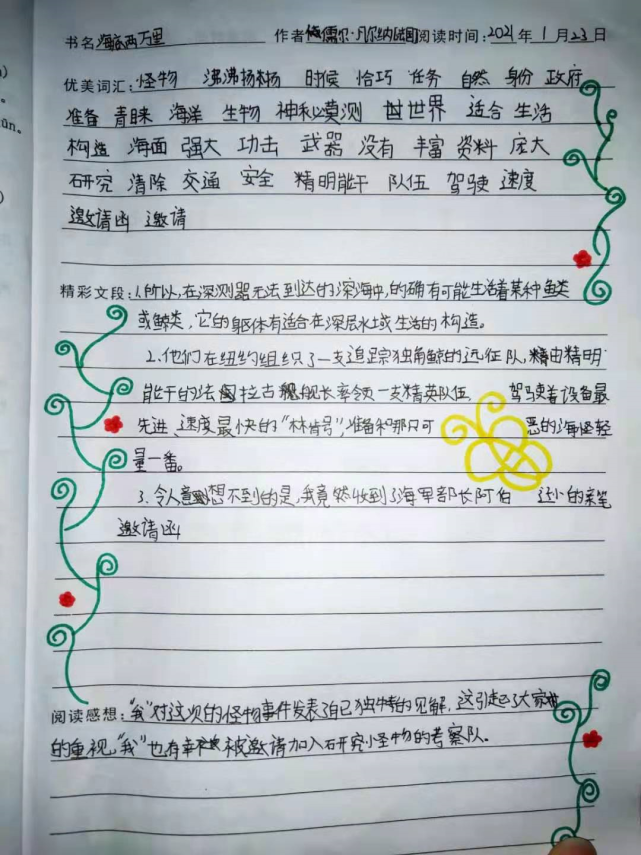 书名:海底两万里 作者:儒尔·凡尔纳(法国)阅读时间:2021年1月23日
优美词汇:怪物 沸沸扬扬 时候 恰巧 任务 自然 身份 政府
准备 青睐 海洋 生物 神秘莫测 世界 适合 生活
构造 海面 强大 功击 武器 没有 丰富 资料 庞大
研究 清除 交通 安全 精明能干 队伍 驾驶 速度
邀请函 邀请
精彩文段:1.所以,在深测器无法到达的深海中,的确有可能生活着某种鱼类
或鲸类,它的躯体有适合在深层水域生活的构造。
2.他们在纽约组织了一支追踪独角鲸的远征队,由精明
能干的法拉古舰长率领一支精英队伍 驾驶着设备最
先进、速度最快的“林肯号”,准备和那只可 恶的海怪轻
量一番。
3.令人意想不到的是,我竟然收到了海军部长阿伯 的亲笔
邀请函
阅读感想:“我”对这次的怪物事件发表了自己独特的见解,这引起了大家
的重视,“我”也有幸被邀请加入研究小怪物的考察队。